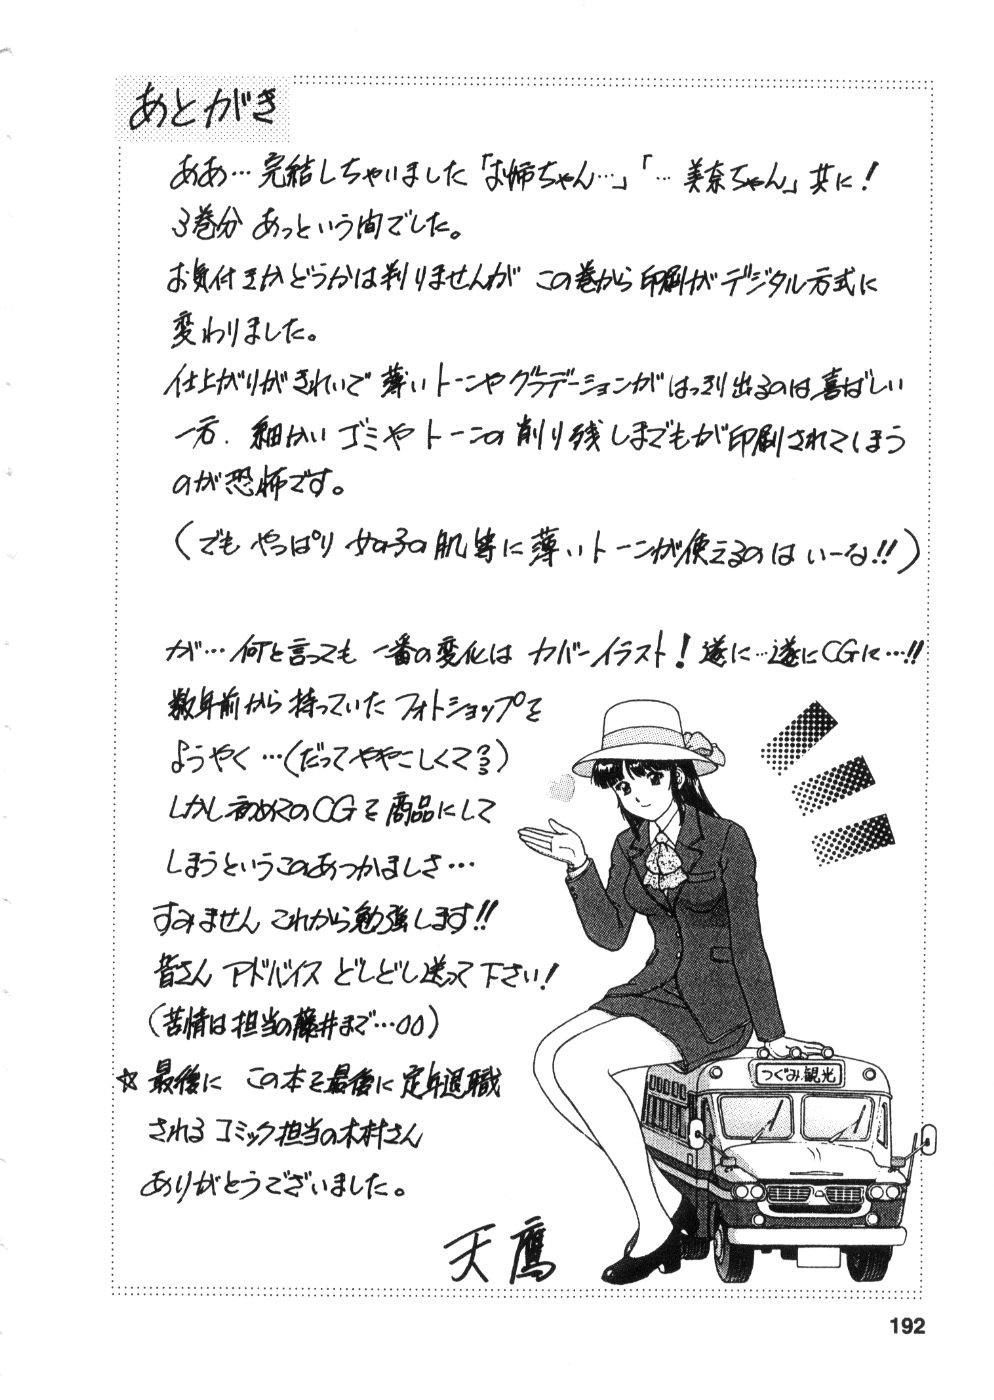 あとがき
ああ…完結しちゃいました「お姉ちゃん…」「…美奈ちゃん」共に!
3巻分 あっという間でした。
お気付きかどうかは判りませんが この巻から印刷がデジタル方式に
変わりました。
仕上がりがきれいで 薄いトーンやグラデーションがはっきり出るのは喜ばしい
一方、細かいゴミやトーンの削り残しまでもが印刷されてしまう
のが恐怖です。
(でも やっぱり 女の子の肌等に薄いトーンが使えるのは いーな!!)
が…何と言っても 一番の変化は カバーイラスト! 遂に…遂にCGに…!!
数年前から持っていた フォトショップを
ようやく…(だってややこしくて??)
しかし初めてのCGを商品にして
しまうというこのあつかましさ…
すみません これから勉強します!!
皆さん アドバイス どしどし送って下さい!
(苦情は担当の藤井まで…00)
☆最後に この本を最後に定年退職
されるコミック担当の木村さん
ありがとうございました。
つぐみ観光
天鷹
192